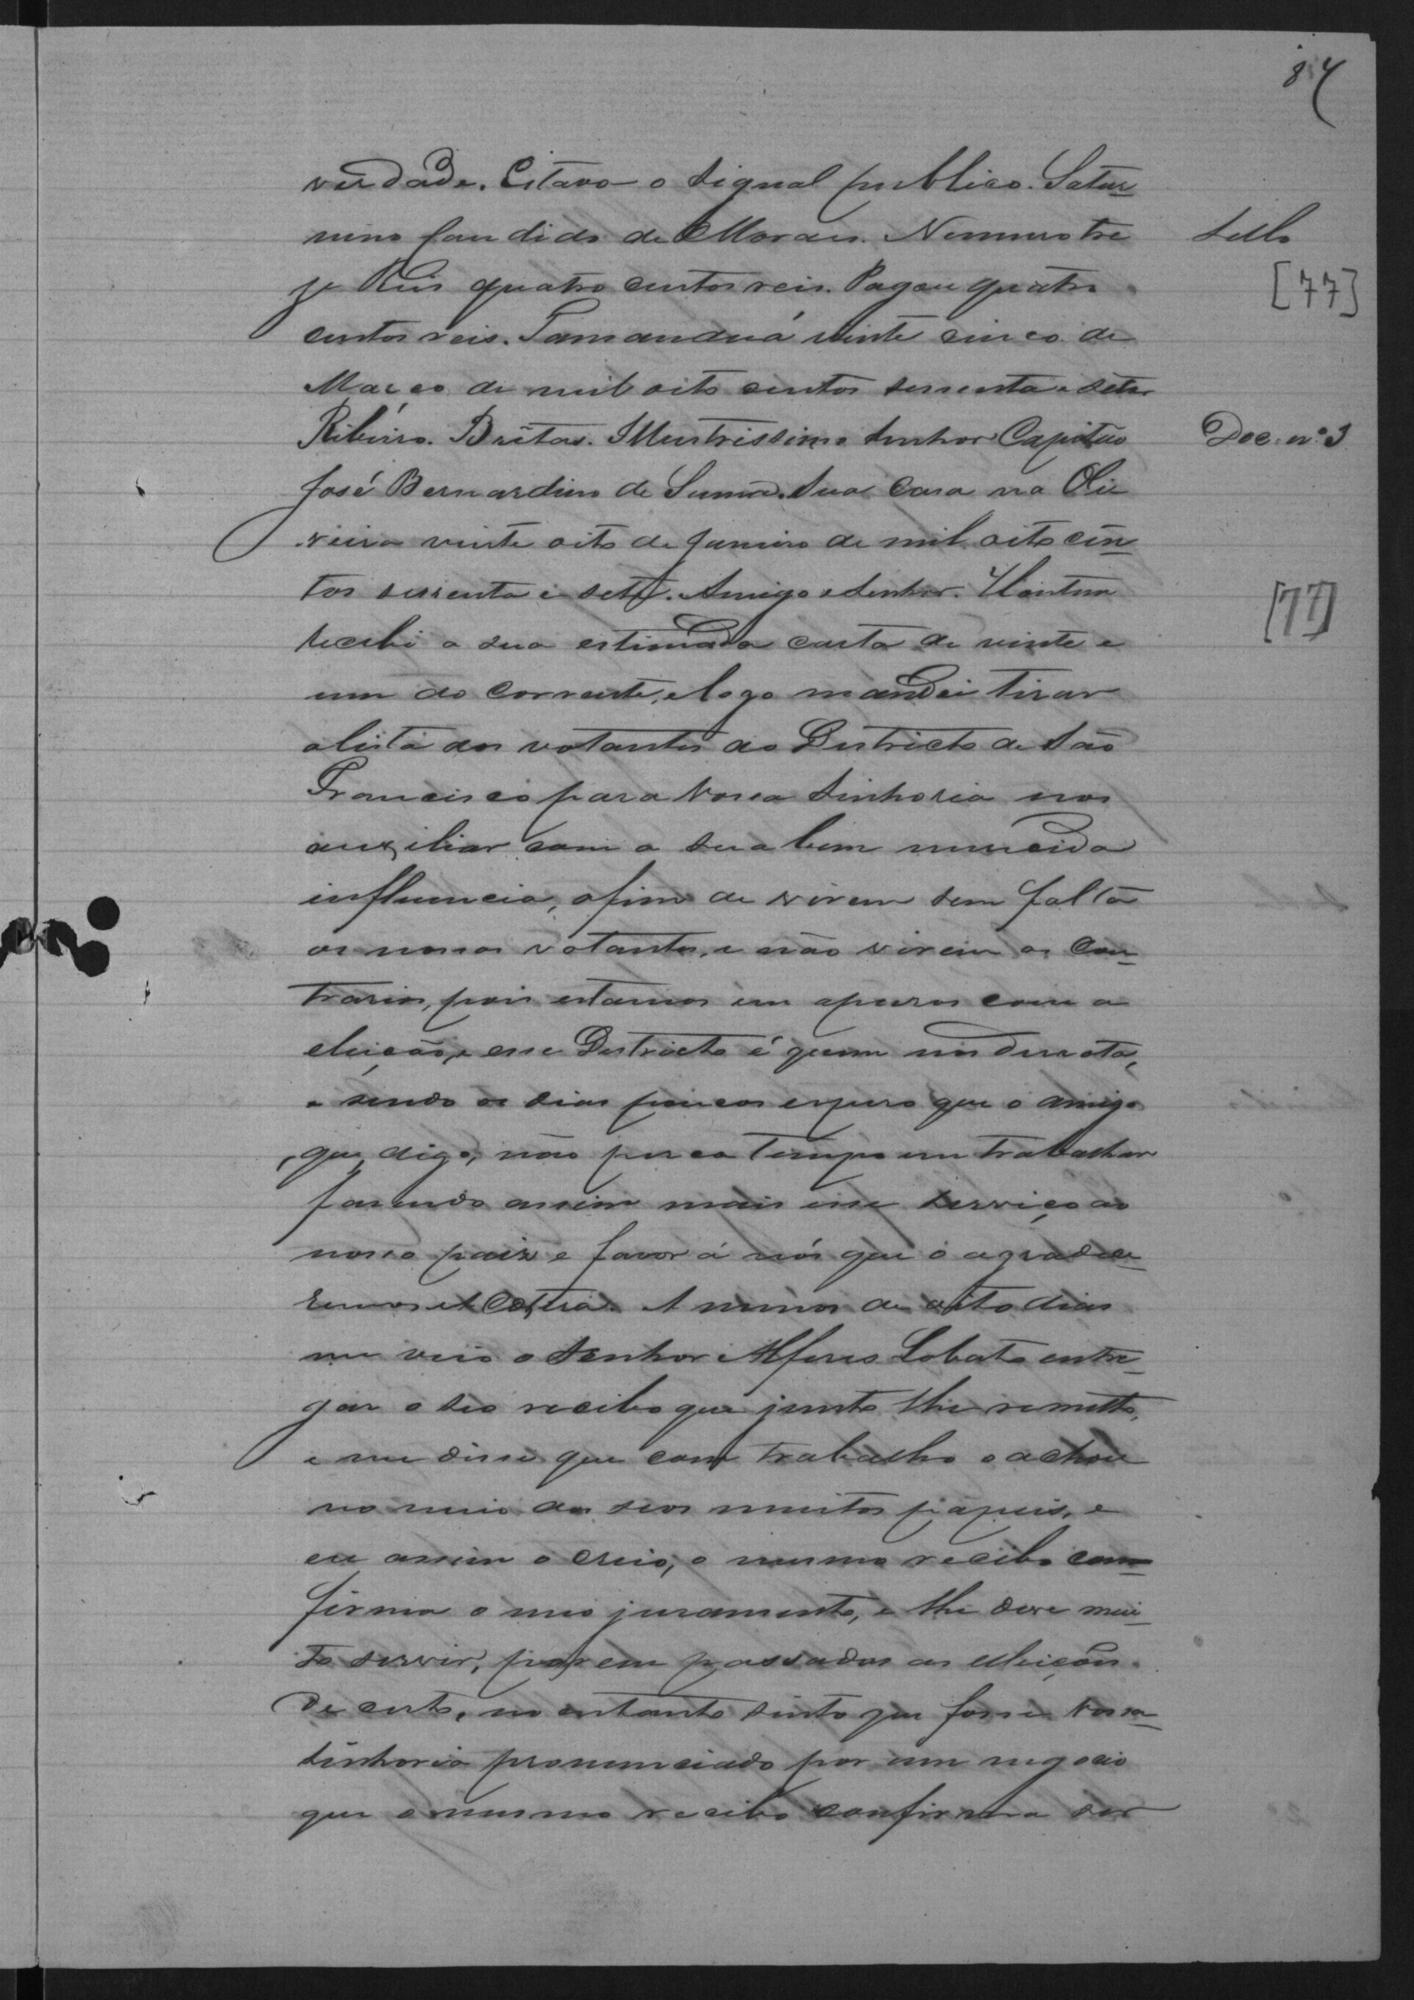 84
verdade. Estava o signal publico. Satur-
nino Candido de Moraes. Numero tre
ze Reis quatro centos reis. Pagou quatro
centos reis. Tamanduá vinte cinco de
Março de mil oito centos sessenta e sete
Ribeiro. Brêtas. Illustrissimo Senhor Capitão
José Bernardino de Sua casa na Oli
veira vinte oito de Janeiro de mil oito cen-
tos sessenta e sete. Amigo e Senhor. Hontem
recebi a sua estimada carta de vinte e
um do corrente, e logo mandei tirar
a lista dos votantes do Districto de São
Francisco para Vossa Sinhoria nos
auxiliar com a sua bem merecida
influencia, afim de virem sem falta
os nossos votantes, e não virem os con-
trarios, pois estamos em apuros com a
eleição, e esse Districto é quem nos derrota,
e sendo os dias poucos espero que o amigo
, que, digo, não perca tempo em trabalhar
fasendo assim mais esse serviço ao
nosso paiz e favor á nós que o agradece-
remos et Cetera. A menos de oito dias
me veio o Senhor Alferes Lobato entre-
gar o seo recibo que junto lhe remetto,
e me disse que com trabalho o achou
no meio dos seos muitos papeis, e
eu assim o creio, o mesmo recibo com-
firma o meo juramento, e lhe deve mui-
to servir, porem passadas as eleições.
De certo, no entanto sinto que fosse Vossa-
Sinhoria pronunciado por um negocio
que o mesmo recibo confirma ser
Sello
[77]
Doc. nº 3
[77]